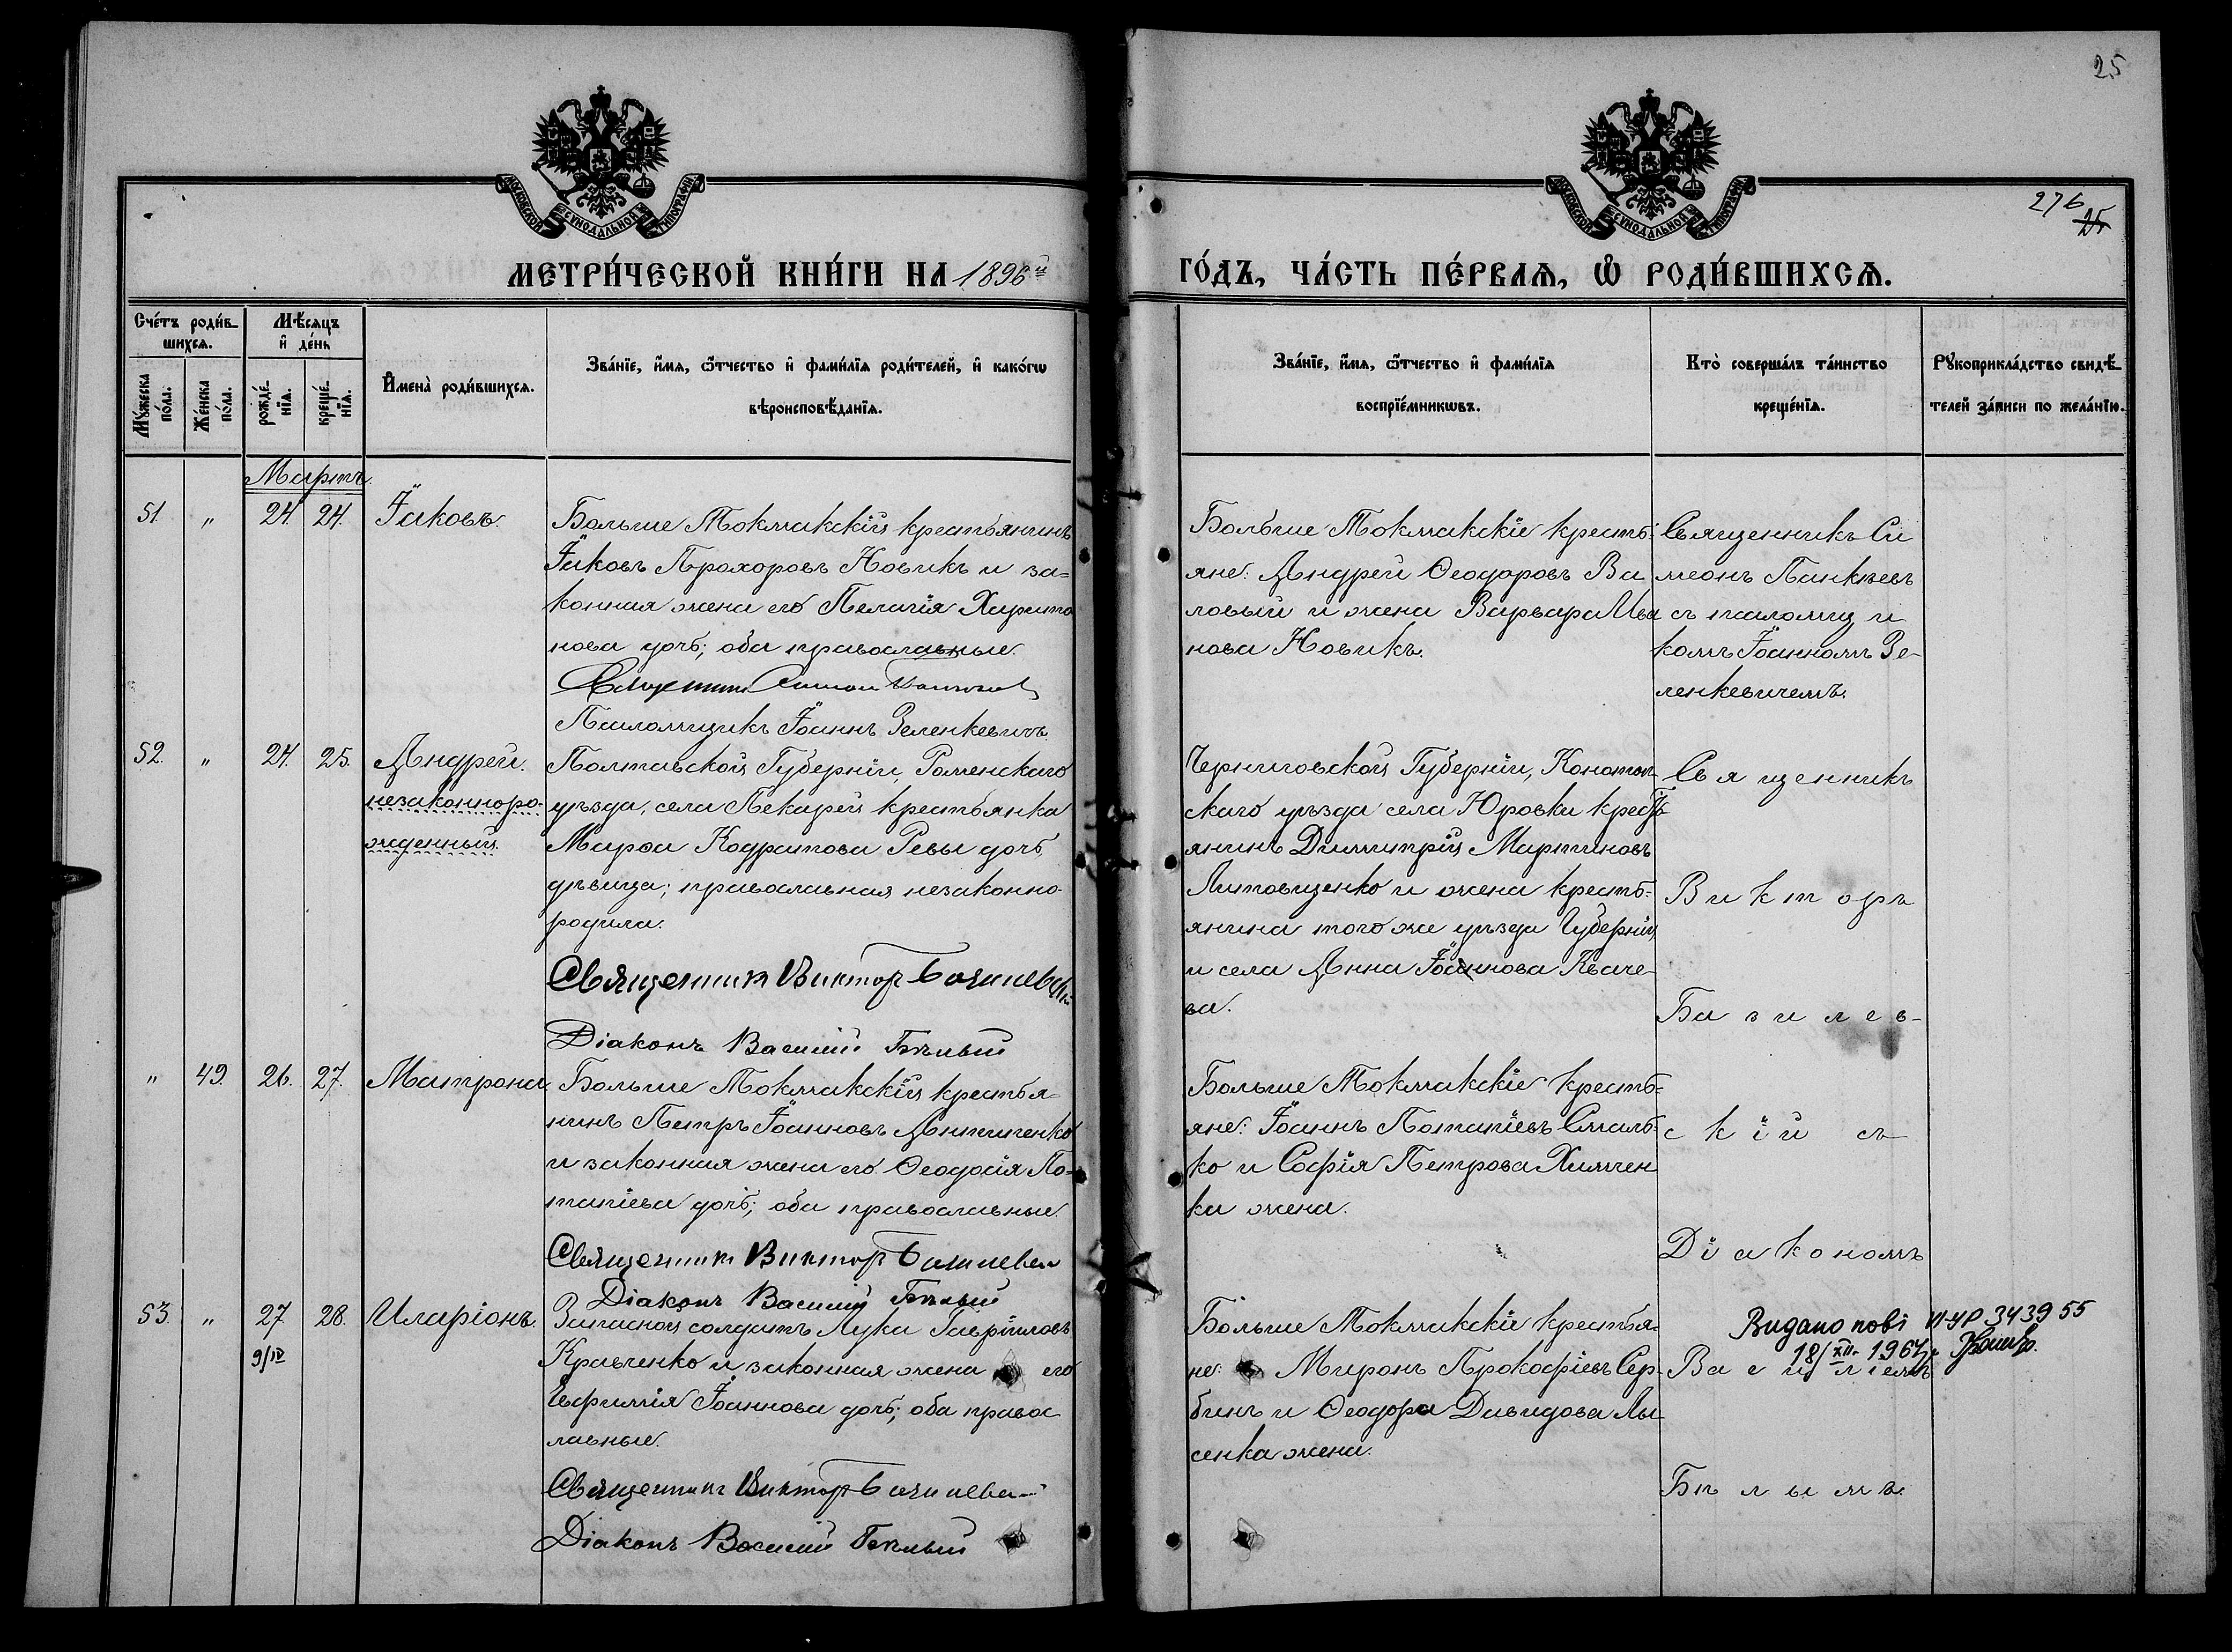 25
276
25
МОСКОВСКОЙ СѴНОДАЛЬНОЙ ТИПОГРАФІИ
МОСКОВСКОЙ СѴНОДАЛЬНОЙ ТИПОГРАФІИ
МЕТРИ́ЧЕСКОЙ КНИ́ГИ НА 1896й
ГО́ДЪ, ЧА́СТЬ ПЕ́РВАѦ, Ѡ РОДИ́ВШИХСѦ.
Сче́тъ роди́в-
шихсѧ.
Мѣ́сѧцъ
и де́нь
Мꙋ́жеска по́ла.
Же́нска по́ла.
рожде́-
нїѧ.
креще́-
нїѧ.
Имена̀ роди́вшихсѧ.
Зва́нїе, и́мѧ, ѻ́тчество и фами́лїѧ роди́телей, и како́гѡ
вѣроисповѣ́данїѧ.
Зва́нїе, и́мѧ, ѻ́тчество и фами́лїѧ
воспрїе́мникѡвъ.
Кто̀ соверша́лъ та́инство
креще́нїѧ.
Рꙋкоприкла́дство свидѣ́-
телей за́писи по жела́нїю.
Мартъ.
51. " 24. 24. Іаковъ.
Больше Токмакскій крестьянинъ
Іаковъ Прохоровъ Новикъ и за=
конная жена его Пелагія Харито
нова дочь; оба православные.
Священникъ Симеон
Псаломщикъ Іоаннъ Зеленкевичъ.
Больше Токмакскіе кресть=
яне: Андрей Ѳеодоровъ Ва
ловый и жена Варвара Ива
нова Новикъ.
Священникъ Си
меонъ Панкѣевъ
съ псаломщи
комъ Іоанномъ Зе-
ленкевичемъ.
52. " 24. 25. Андрей.
незаконноро-
жденный.
Полтавской Губерніи, Роменскаго
уѣзда, села Пекарей крестьянка
Марѳа Кодратова Ревы дочь,
дѣвица; православная незаконно-
родила.
Священник Виктор Базилевский
Діаконъ Василій Бѣлый
Черниговской Губерніи, Конотоп-
скаго уѣзда села Юровки кресть
янинъ Димитрій Мартиновъ
Литовщенко и жена кресть-
янина того же уѣзда Губерніи
и села Анна Іоаннова Кваче-
ва.
Священникъ
Викторъ
Базилев-
скій съ
Діакономъ
Василіемъ
Бѣлымъ.
" 49. 26. 27. Матрона
Больше Токмакскій крестья-
нинъ Петръ Іоанновъ Антипенко
и законная жена его Ѳеодосія По=
тапіева дочь; оба православные.
Священник Виктор Базилевск
Діаконъ Василій Бѣлый
Больше Токмакскіе кресть-
яне: Іоаннъ Потапіевъ Смаль-
ко и Софія Петрова Химчен
ка жена.
53. " 27 28. Иларіонъ.
9/IV
Запасной солдатъ Лука Гавріиловъ
Кравченко и законная жена его
Евфимія Іоаннова дочь; оба правос
лавные.
Священник Виктор Базилевс
Діаконъ Василій Бѣлый
Больше Токмакскіе крестья-
не: Миронъ Прокофіевъ Сер-
бинъ и Ѳеодора Давидова Лы
сенка жена.
Видано нові VI-УР 343955
18/XII. 1967